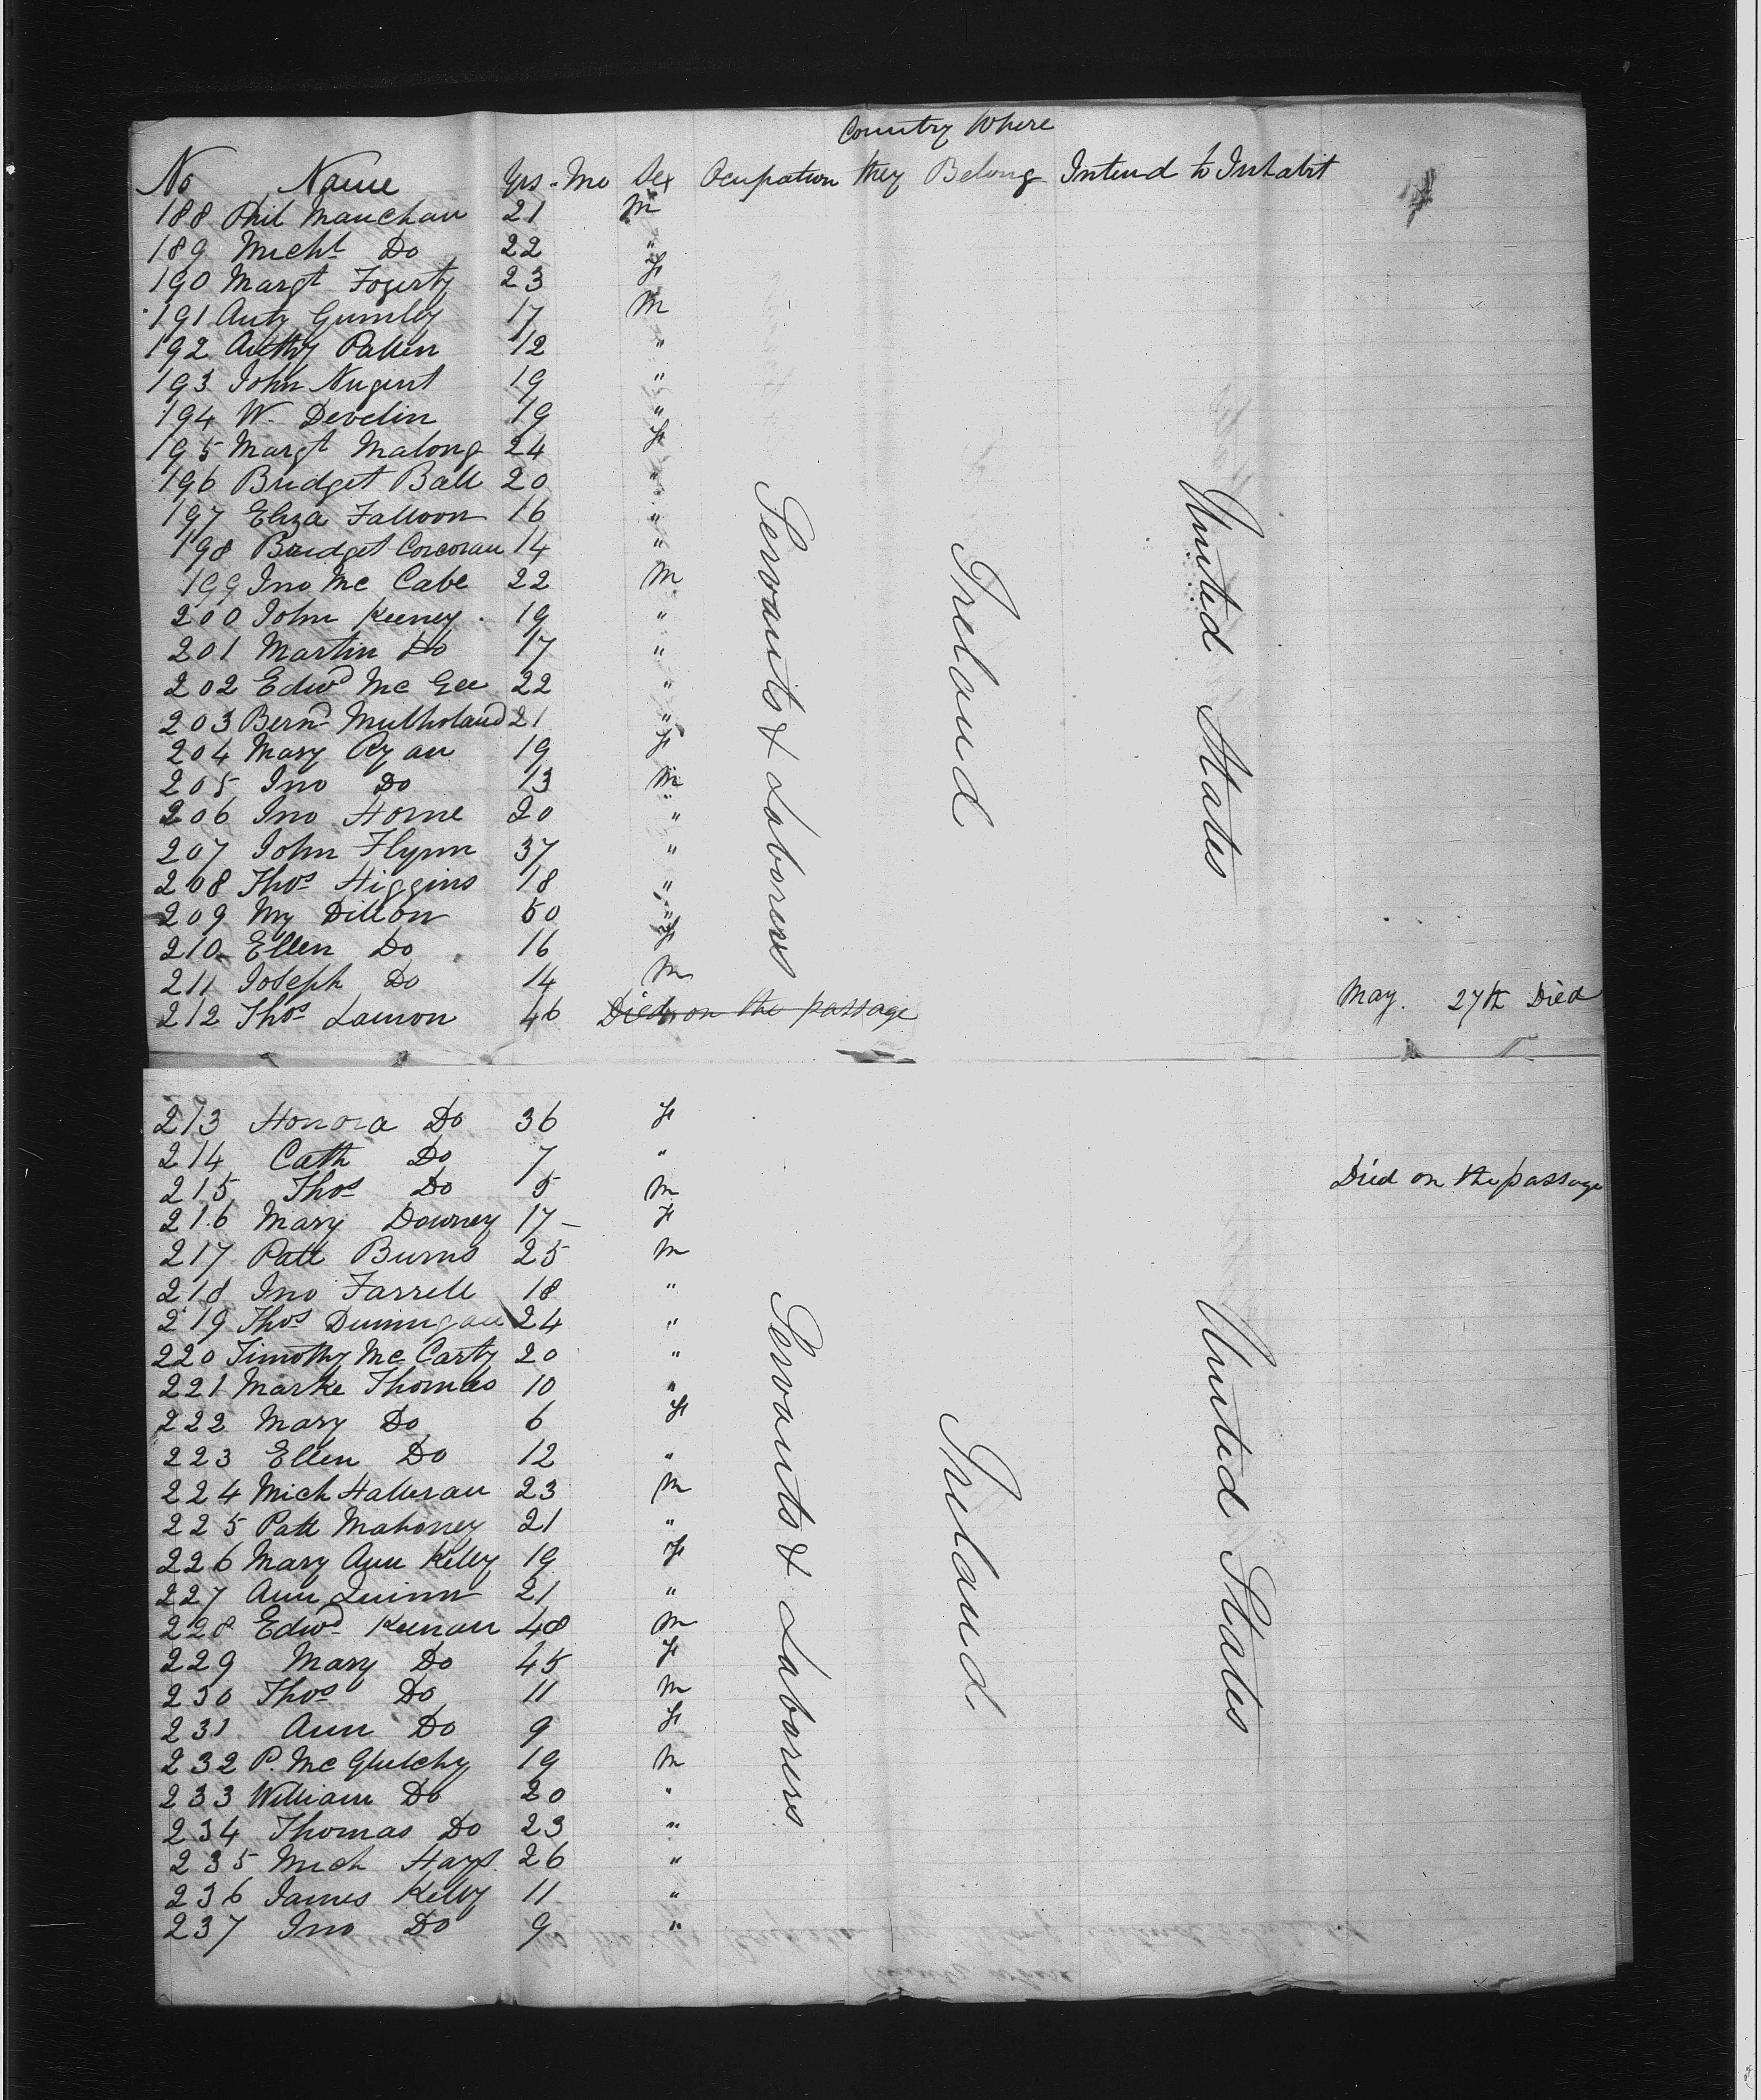 Country Where
No Name Yrs. Mo Sex Ocupation they Belong Intend to Inhabit
188 Phil Manchan 21 M
189 Michl Do 22 "
190 Margt Fogerty 23 F
191 Anty Gumley 17 M
192 Anthy Patten 12 "
193 John Nugent 19 "
194 W. Develin 19 "
195 Margt Malong 24 F
196 Bridget Ball 20 "
197 Eliza Falloon 16 "
198 Bridget Corcoran 14 "
199 Jno Mc Cabe 22 M
200 John Keeney 19 "
201 Martin Do 17 "
202 Edwd Mc Gee 22 "
203 Bernd Mulholand 21 "
204 Mary Ryan 19 F
205 Jno Do 13 M
206 Jno Horne 20 "
207 John Flynn 37 "
208 Thos Higgins 18 "
209 My Dillon 50 "
210 Ellen Do 16 F
211 Joseph Do 14 M
212 Thos Lamon 46 Died on the passage May. 27th Died
Servants & Laborers
Ireland
United States
213 Honora Do 36 F
214 Cath Do 7 "
215 Thos Do 5 M Died on the passage
216 Mary Downey 17 – F
217 Patt Burns 25 M
218 Jno Farrell 18 "
219 Thos Dunnigan 24 "
220 Timothy Mc Carty 20 "
221 Marke Thomas 10 "
222 Mary Do 6 F
223 Ellen Do 12 "
224 Mich Halleran 23 M
225 Patt Mahoney 21 "
226 Mary Ann Kelly 19 F
227 Ann Quinn 21 "
228 Edwd Keenan 48 M
229 Mary Do 45 F
230 Thos Do 11 M
231 Ann Do 9 F
232 P. Mc Glutchy 19 M
233 William Do 20 "
234 Thomas Do 23 "
235 Mich Hays 26 "
236 James Kelly 11 "
237 Jno Do 9 "
Servants & Laborers
Ireland
United States